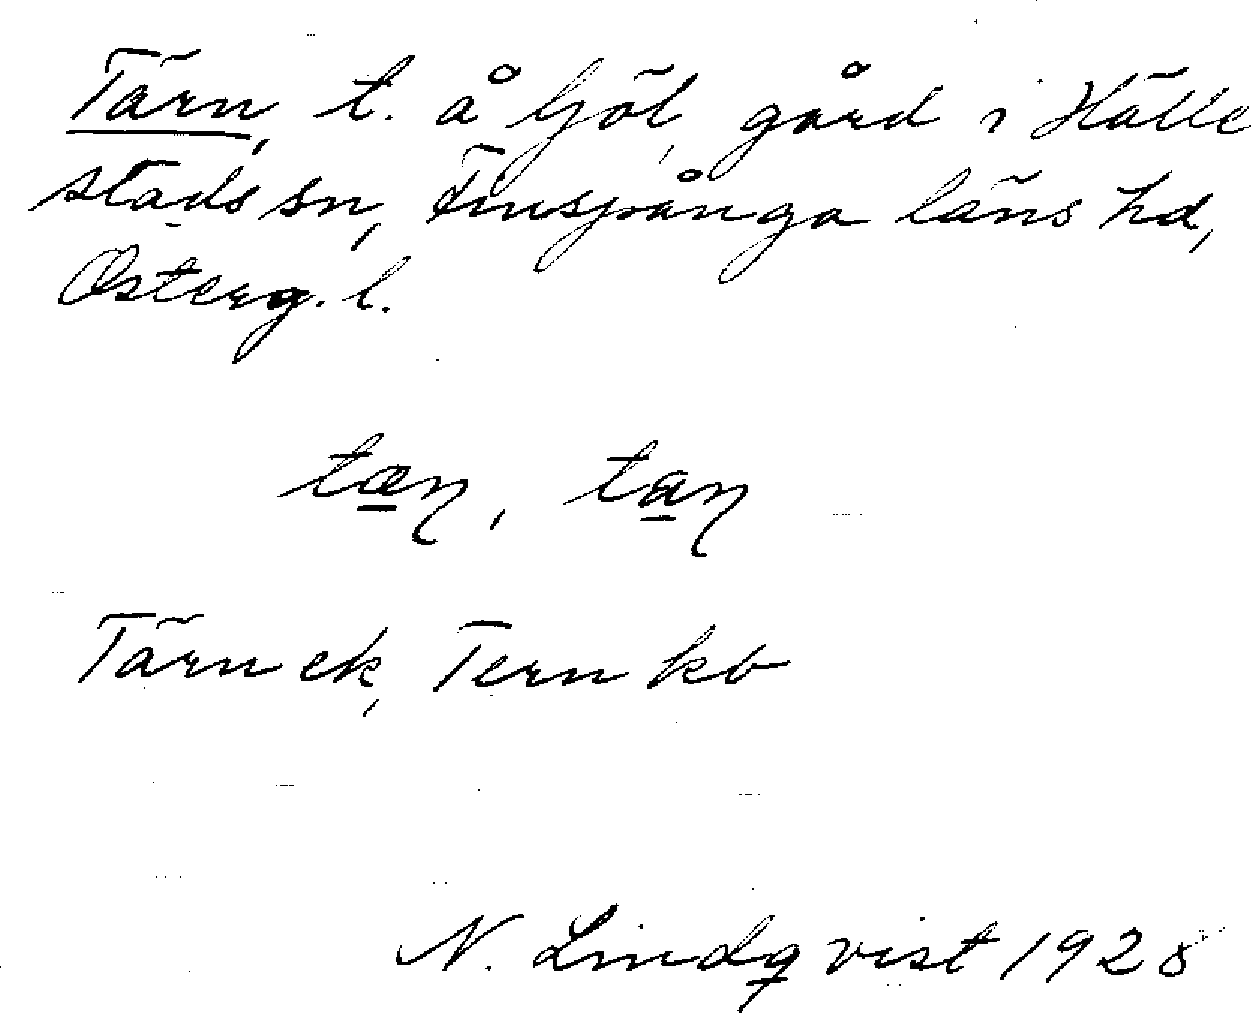 Tärn, t. å Göl, gård i Hälle
stads sn, Finspånga läns hd,
Österg. l.
tæɳ, taɳ
Tärn ek, Tern kb
N. Lindqvist 1928